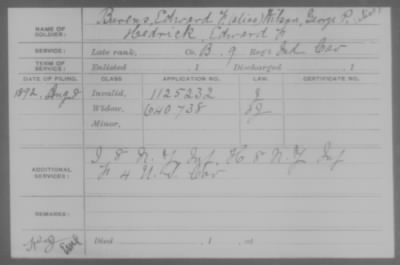 NAME OF SOLDIER: Bivens, Edward F. (alias) Wilson, George P.
Hedrick, Edward F
SERVICE: Late rank, Co. B. 9 Reg't Ind Cav
TERM OF SERVICE: Enlisted , 1 Discharged , 1
DATE OF FILING. CLASS. APPLICATION NO. LAW. CERTIFICATE NO.
1892, Aug 2 Invalid, 1125232
Widow, 640738
Minor,
ADDITIONAL SERVICES: I 8 N.Y. Inf. H 8 N.Y. Inf
F 4 U.S. Cav
REMARKS:
Died , 1 , at